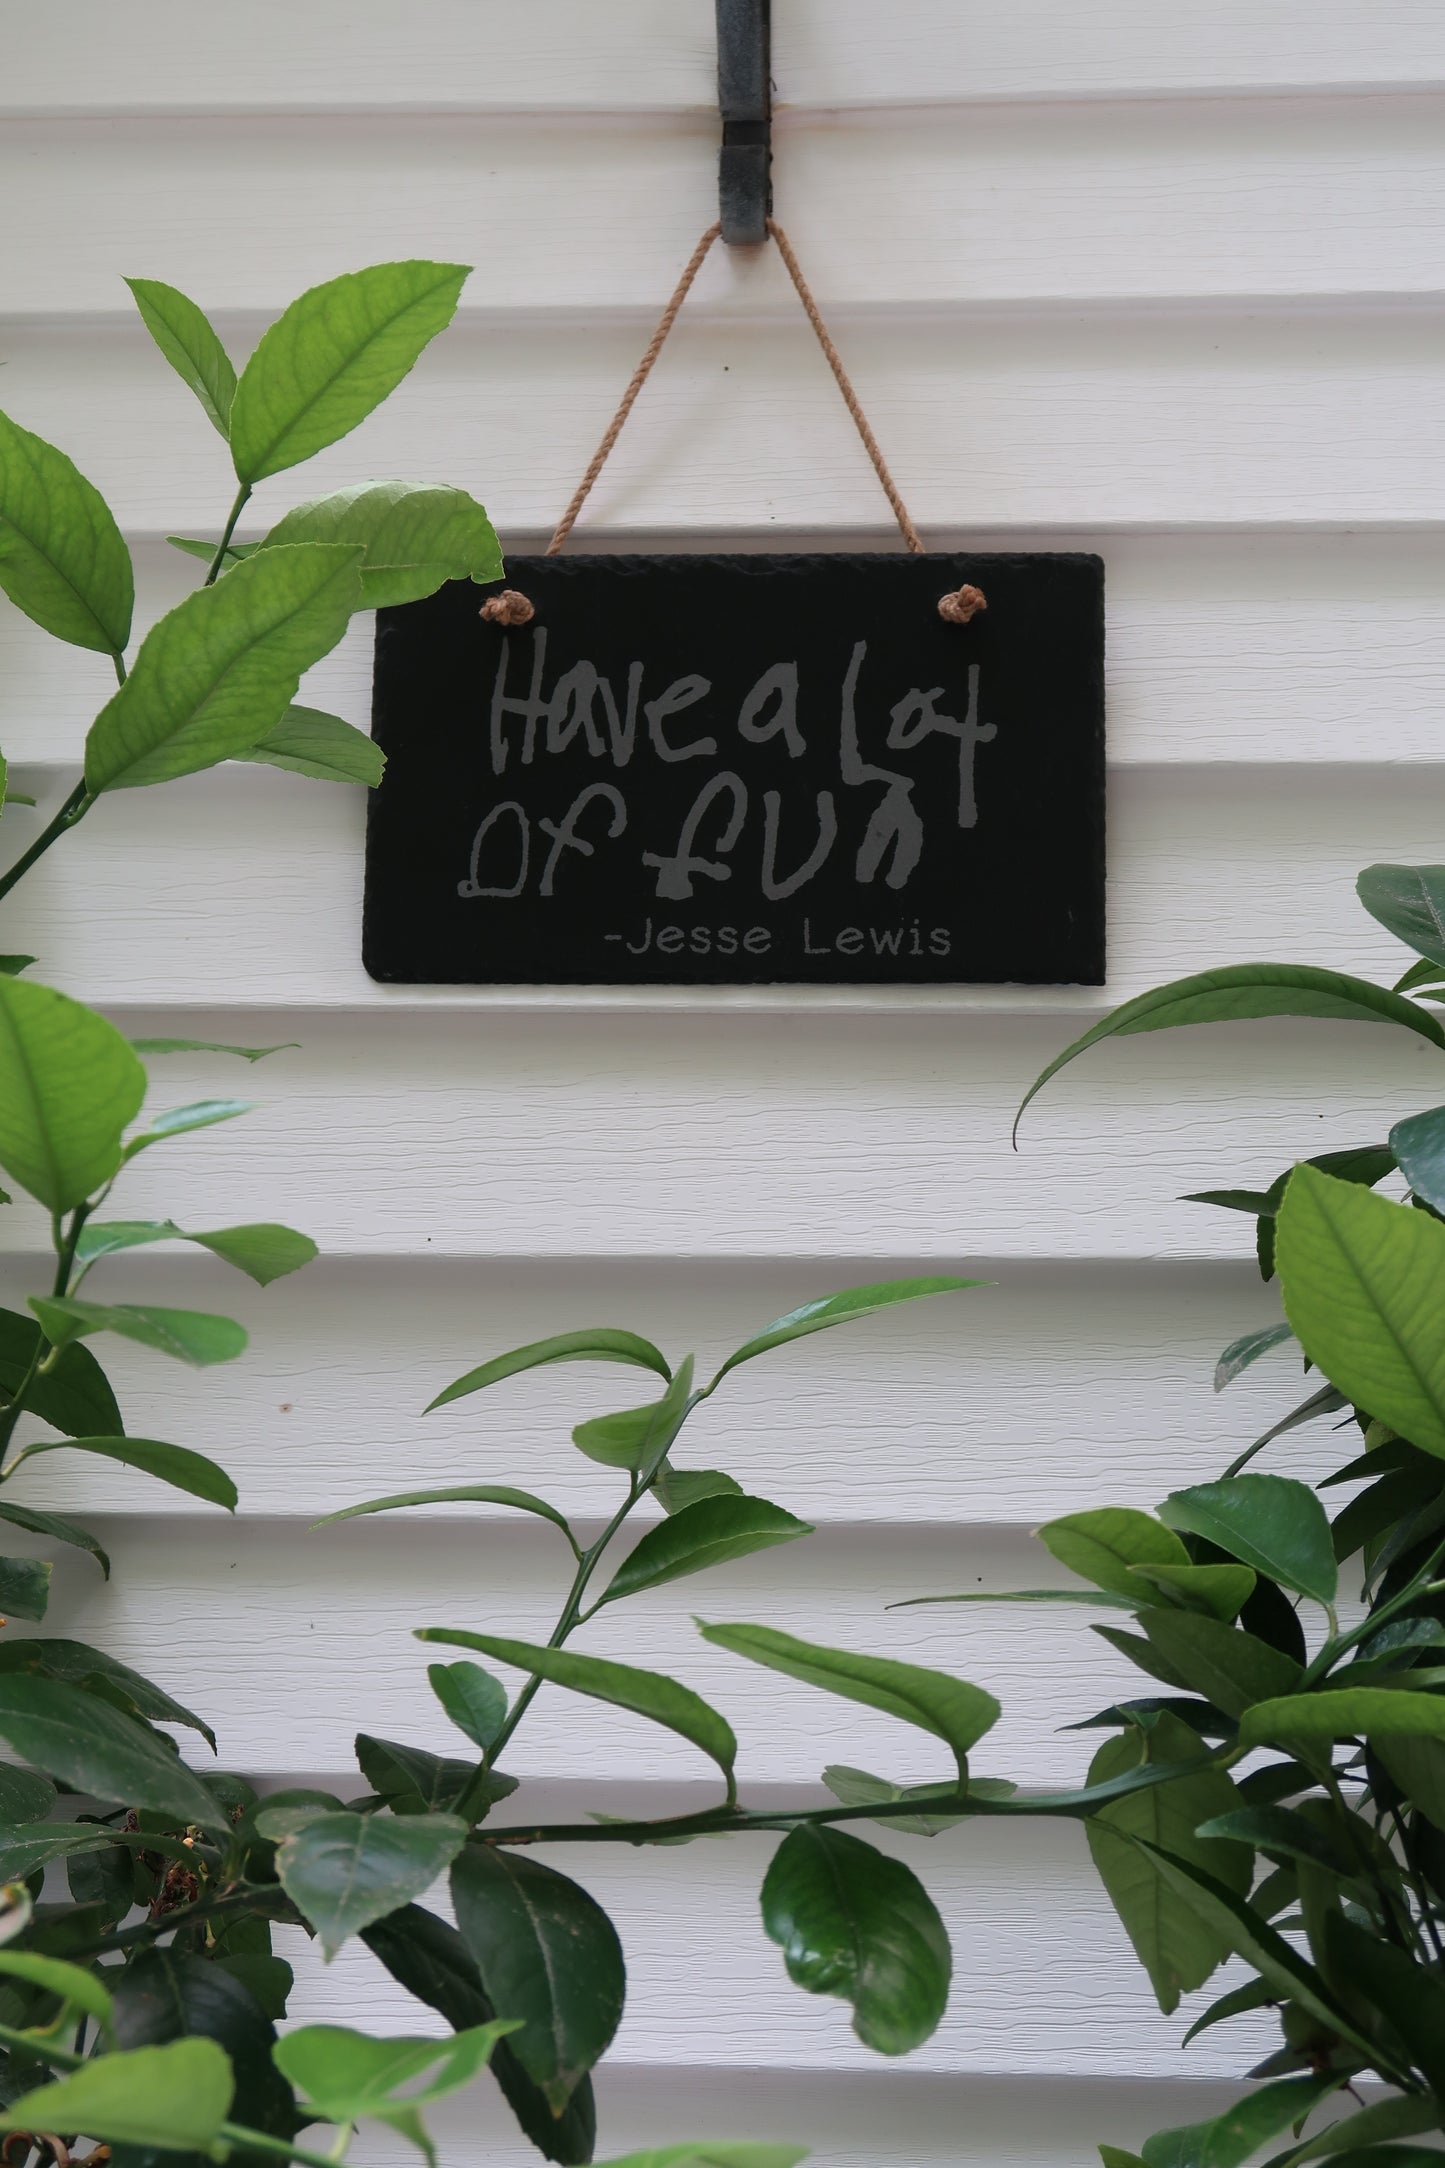 Have a Lot
of fun
-Jesse Lewis